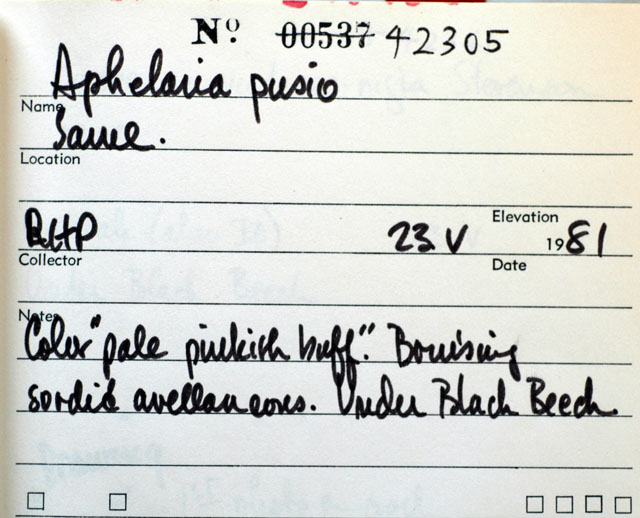 Nº 00537 42305
Aphelaria pusio
Name
Same.
Location
RHP 23 V Elevation 1981
Collector Date
Notes
Color "pale pinkish buff". Bruising
sordid avellaneous. Under Black Beech.